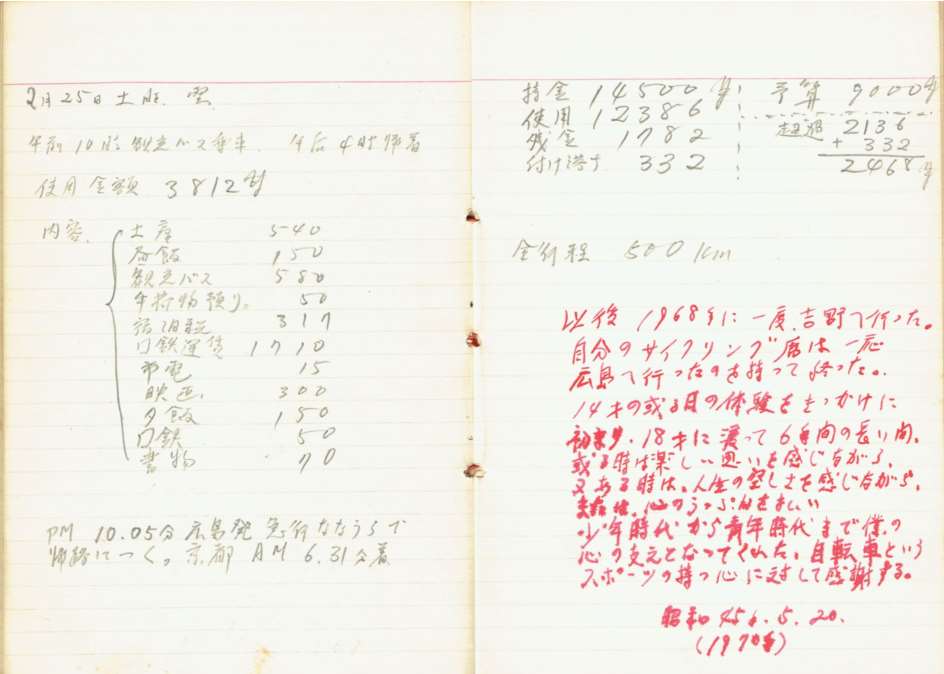 2月25日 土曜. 曇
午前10時 観光バス乗車. 午后4時帰着
使用金額 3812円
内容.
土産 540
昼飯 150
観光バス 580
手荷物預り. 50
宿泊税 317
国鉄運賃 1710
市電 15
映画. 300
夕飯 150
国鉄 50
書物 70
PM 10.05分 広島発 急行ななうらで
帰路につく。京都 AM 6.31分着
持金 14500円
使用 12386
残金 1782
付け落す 332
予算 9000円
超過 2136
+ 332
2468円
全行程 500km
以後 1968年に一度.吉野へ行った。
自分のサイクリング歴は一応
広島へ行ったのを持って終った。
14才の或る日の体験をきっかけに
初まり.18才に渡って6年間の長い間.
或る時は楽しい思いを感じながら、
又ある時は、人生の空しさを感じながら、
は、心のうっぷんを
少年時代から青年時代まで僕の
心の支えとなってくれた、自転車という
スポーツの持つ心に対して感謝する。
昭和45年.5.20.
(1970年)